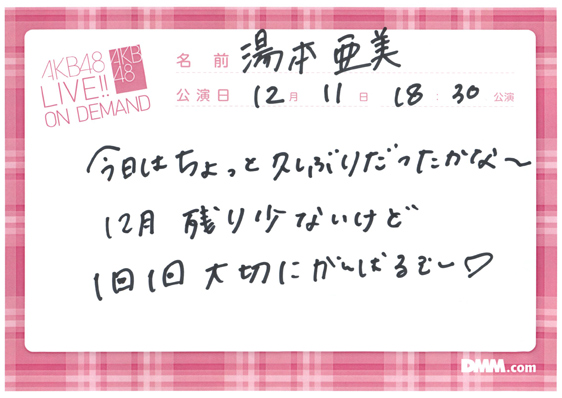 AKB48
LIVE!!
ON DEMAND
AKB
48
名前 湯本亜美
公演日 12月 11日 18:30 公演
今日はちょっと久しぶりだったかな〜
12月 残り少ないけど
1回1回 大切にがんばるむー♡
DMM.com